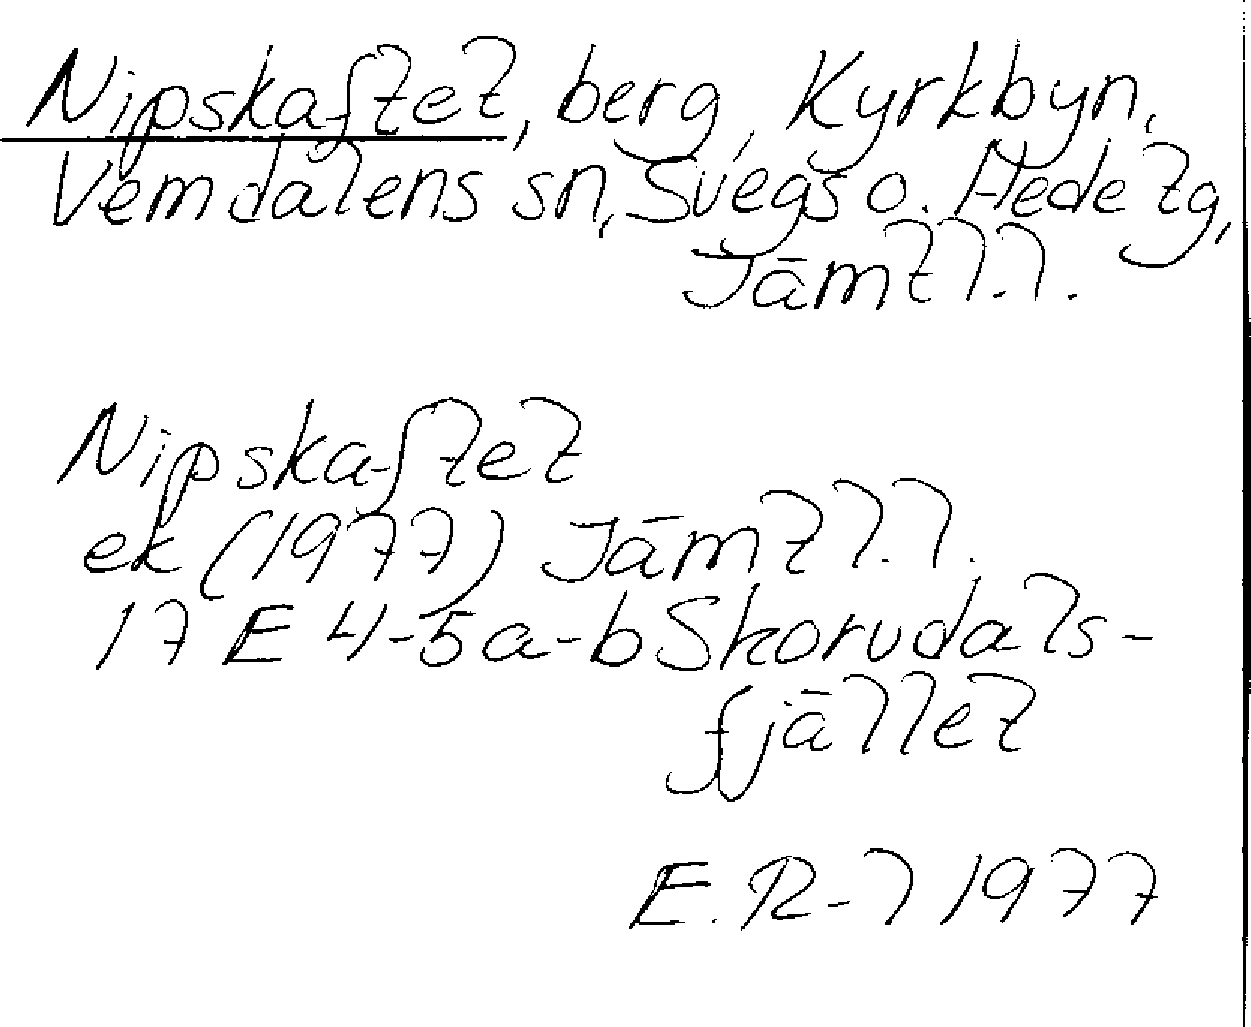 Nipskaftet, berg, Kyrkbyn,
Vemdalens sn, Svegs o. Hede tg,
Jämtl.l.
Nipskaftet
ek (1977) Jämtl.l.
17 E 4-5 a-b Skorvdals-
fjället
E. R-l 1977